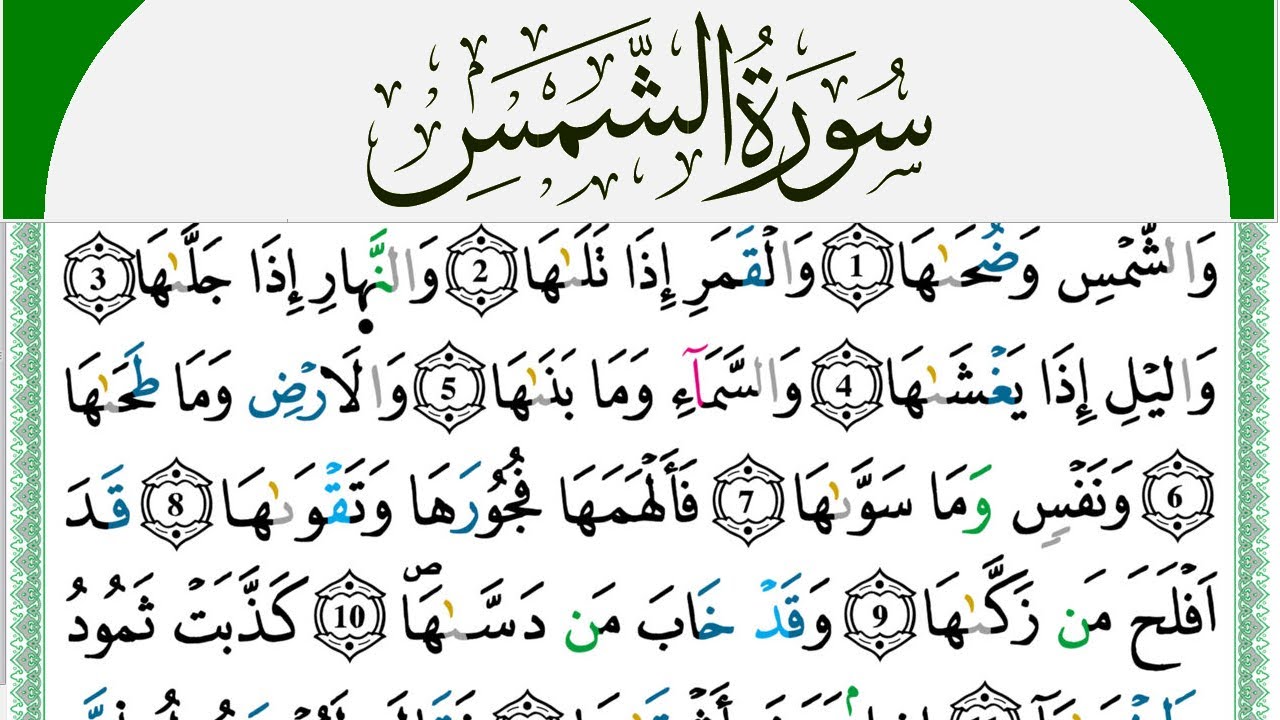 سُورَةُ الشَّمْسِ
وَالشَّمْسِ وَضُحَىٰهَا 1 وَالْقَمَرِ إِذَا تَلَىٰهَا 2 وَالنَّهارِ إِذَا جَلَّىٰهَا 3
وَاليْلِ إِذَا يَغْشَىٰهَا 4 وَالسَّمَآءِ وَمَا بَنَىٰهَا 5 وَالَارْضِ وَمَا طَحَىٰهَا
6 وَنَفْسٍ وَمَا سَوَّىٰهَا 7 فَأَلْهَمَهَا فُجُورَهَا وَتَقْوَىٰهَا 8 قَدَ
اَفْلَحَ مَن زَكَّىٰهَا 9 وَقَدْ خَابَ مَن دَسَّىٰهَا ۖ 10 كَذَّبَتْ ثَمُودُ